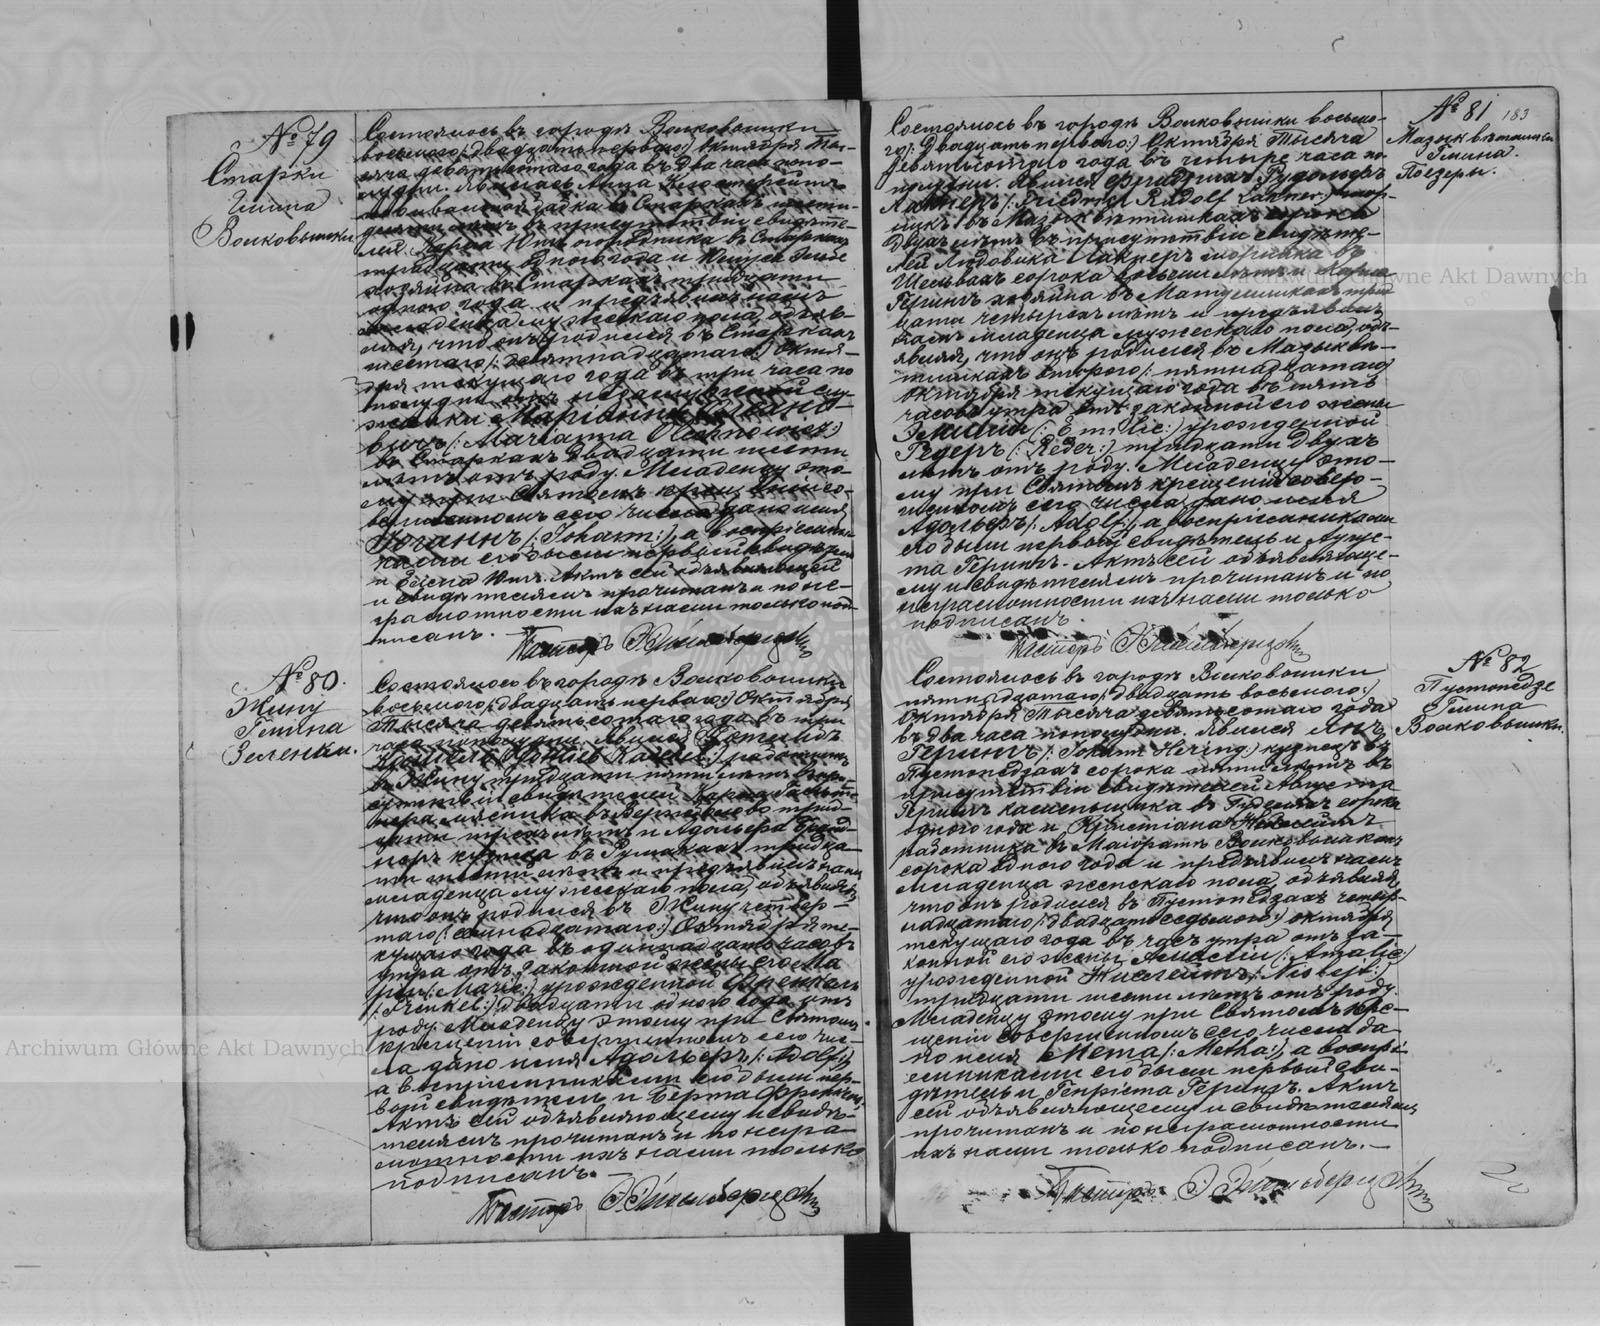 № 79
Старки
Гмина
Волковышки
Состоялось въ городѣ Волковышки
восьмого /: двадцать перваго :/ Октября Ты-
сяча девятьсотаго года въ два часа попо-
лудни. Явилась Анна
въ Старкахъ
въ присутствіи свидѣте-
лей Карла огородника въ Старкахъ
тридцати одного года и
хозяина въ Старкахъ тридцати
одного года и предъявила намъ
младенца мужескаго пола, объяв-
ляя, что онъ родился въ Старкахъ
шестаго /: девятнадцатаго :/ Октя-
бря текущаго года въ три часа по
полудни отъ незамужней слу-
жанки Маріанны Олехно-
вичъ /: Marianna Olechnowicz :/
въ Старкахъ двадцати шести
лѣтъ отъ роду. Младенцу это-
му при Святомъ крещеніи со-
вершенномъ сего числа дано имя
Іоганнъ /: Johann :/, а воспріемни-
ками его были первый свидѣтель
и Актъ сей объявляющей
и свидѣтелямъ прочитанъ и по не-
грамотности ихъ нами только под-
писанъ.
Пасторъ
№ 80.
Жину
Гмина
Зеленки.
Состоялось въ городѣ Волковышки
восьмого /: двадцать перваго :/ Октября
Тысяча девятьсотаго года въ три
часа пополудни. Явился Готлибъ
/: Gottlieb :/ работникъ
въ Жину тридцати пяти лѣтъ въ при-
сутствіи свидѣтелей Карла
мясника въ трид-
цати трехъ лѣтъ и Адольфа
кузнеца въ тридца-
ти шести лѣтъ и предъявилъ намъ
младенца мужескаго пола, объявляя,
что онъ родился въ Жину четвер-
таго /: семнадцатаго :/ Октября те-
кущаго года въ одиннадцать часовъ
утра отъ законной жены его Ма-
ріи /: Marie :/ урожденной Френкель
/: Frenkel :/ двадцати одного года отъ
роду. Младенцу этому при Святомъ
крещеніи совершенномъ сего чис-
ла дано имя Адольфъ /: Adolf :/,
а воспріемниками его были пер-
вый свидѣтель и Берта Френкель.
Актъ сей объявляющему и свидѣ-
телямъ прочитанъ и по негра-
мотности ихъ нами только
подписанъ.
Пасторъ
№ 81
183
Гмина.
Поезеры.
Состоялось въ городѣ Волковышки восьмо-
го /: двадцать перваго :/ Октября Тысяча
девятьсотаго года въ четыре часа по
полудни. Явился Фридрихъ Рудольфъ
Лакнеръ /: Friedrich Rudolf Lakner :/
въ сорока
двухъ лѣтъ въ присутствіи свидѣте-
лей Людовика Лакнеръ въ
сорока восьми лѣтъ и
Герингъ хозяина въ трид-
цати четырехъ лѣтъ и предъявилъ
намъ младенца мужескаго пола, объ-
являя, что онъ родился въ
второго /: пятнадцатаго
Октября текущаго года въ пять
часовъ утра отъ законной его жены
Эмиліи /: Emilie :/ урожденной
Редеръ /: Reder :/ тридцати двухъ
лѣтъ отъ роду. Младенцу это-
му при Святомъ крещеніи совер-
шенномъ сего числа дано имя
Адольфъ /: Adolf :/, а воспріемниками
его были первый свидѣтель и Авгус-
та Герингъ. Актъ сей объявляюще-
му и свидѣтелямъ прочитанъ и по
неграмотности ихъ нами только
подписанъ.
Пасторъ
№ 82
Пустопедзе
Гмина
Волковышки.
Состоялось въ городѣ Волковышки
пятнадцатаго /: двадцать восьмого :/
Октября Тысяча девятьсотаго года
въ два часа пополудни. Явился Янъ
Герингъ /: Johann Hering :/ кузнецъ въ
Пустопедзахъ сорока пяти лѣтъ въ
присутствіи свидѣтелей Августа
Герингъ каменьщика въ сорока
одного года и Христіана
работника въ Маіоратѣ Волковышкахъ
сорока одного года и предъявилъ намъ
младенца женскаго пола, объявляя,
что онъ родился въ Пустопедзахъ четыр-
надцатаго /: двадцать седьмого :/ октября
текущаго года въ часъ утра отъ за-
конной его жены Амаліи /: Amalie :/
урожденной
тридцати шести лѣтъ отъ роду.
Младенцу этому при Святомъ кре-
щеніи совершенномъ сего числа да-
но имя Мета /: Metha :/, а воспрі-
емниками его были первый сви-
дѣтель и Генріета Герингъ. Актъ
сей объявляющему и свидѣтелямъ
прочитанъ и по неграмотности
ихъ нами только подписанъ.
Пасторъ
Archiwum Główne Akt Dawnych
Główne Akt Dawnych